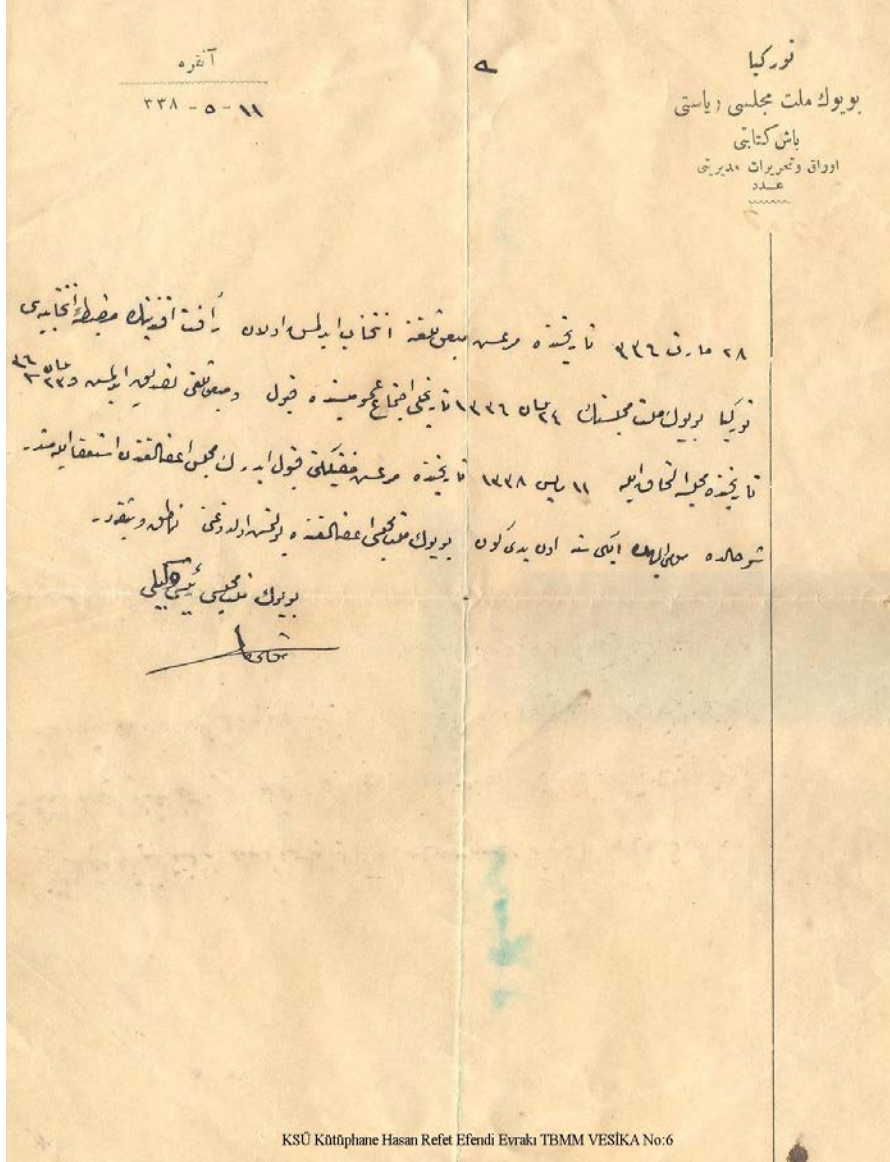 تورکیا
بویوك ملت مجلسی ریاستی
باش کتابتی
اوراق وتحریرات مدیریتی
عـدد
آنقره
١١ - ٥ - ٣٣٨
٢٨ مارت ٣٣٦ تاریخنده مرعش مبعوثلغنه انتخاب ایدلمش اولان رأفت افندینك مضبطهٔ انتخابیه‌سی
تورکیا بویوك ملت مجلسنك ٢٤ نیسان ١٣٣٦ تاریخلی اجتماع عمومیسنده قبول ومبعوثلغی تصدیق ایدلمش و ٢٣ نیسان ٣٣٦
تاریخنده مجلسه التحاق ایله ١١ مایس ١٣٣٨ تاریخنده مرعش قبول ایدرك مجلس اعضالغندن استعفا ایلمشدر
شو حالده مومی‌الیهك ایکی سنه اون یدی کون بویوك ملت مجلسی اعضالغنده بولنمش اولدیغنی ناطق وثیقه‌در
بویوك ملت مجلسی رئیس وکیلی
KSÜ Kütüphane Hasan Refet Efendi Evrakı TBMM VESİKA No:6